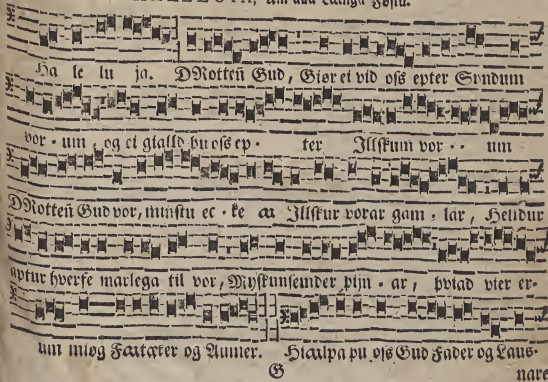 ALLELUJA, um alla Langa Föstu.
Ha le lu ja. DRotteñ Gud, Giør ei vid oss epter Syndum
vor - um, og ei gialld þu oss ep - ter Illskum vor - - um
DRotteñ Gud vor, minstu ec - ke aa Illskur vorar gam - lar, Helldur
aptur hverfe marlega til vor, Myskunsemder þijn - ar, þviad vier er-
um miøg Faatæker og Aumer. Hiaalpa þu oss Gud Fader og Laus-
G nare